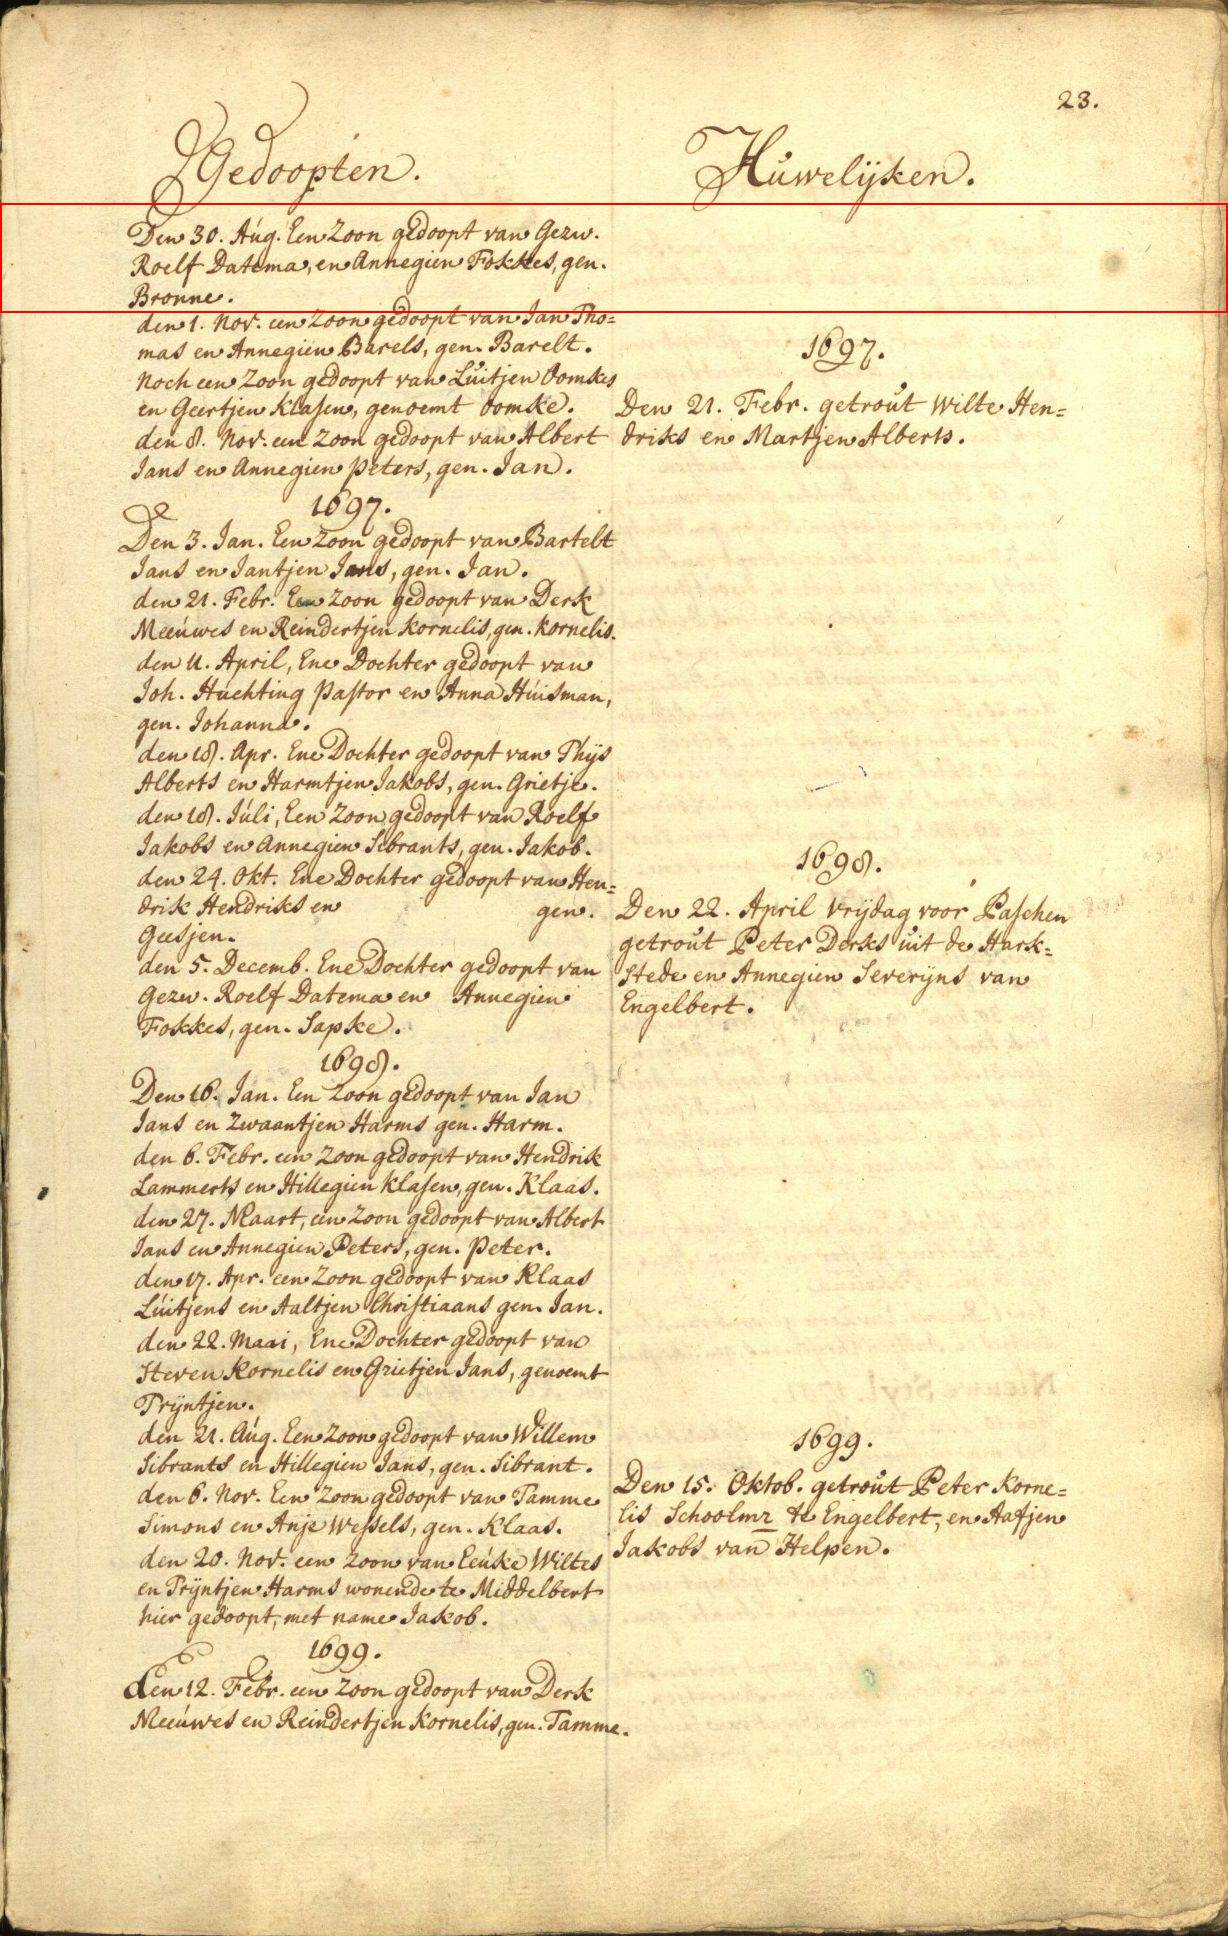 23.
Gedoopten.
Den 30. Aug. Een Zoon gedoopt van Gezw.
Roelf Datema, en Annegien Fokkes, gen.
Bronne.
den 1. Nov. een Zoon gedoopt van Jan Tho=
mas en Annegien Barels, gen. Barelt.
Noch een Zoon gedoopt van Luitjen Oomkes
en Geertjen Klasen, genoemt Oomke.
den 8. Nov. een Zoon gedoopt van Albert
Jans en Annegien Peters, gen. Jan.
1697.
Den 3. Jan. Een Zoon gedoopt van Bartelt
Jans en Jantjen Jans, gen. Jan.
den 21. Febr. Een Zoon gedoopt van Derk
Meeuwes en Reindertjen Kornelis, gen. Kornelis.
den 11. April, Ene Dochter gedoopt van
Joh. Huchting Pastor en Anna Huisman,
gen. Johanna.
den 18. Apr. Ene Dochter gedoopt van Thijs
Alberts en Harmtjen Jakobs, gen. Grietje.
den 18. Juli, Een Zoon gedoopt van Roelf
Jakobs en Annegien Sibrants, gen. Jakob.
den 24. Okt. Ene Dochter gedoopt van Hen=
drik Hendriks en gen.
Geesjen.
den 5. Decemb. Ene Dochter gedoopt van
Gezw. Roelf Datema en Annegien
Fokkes, gen. Sapke.
1698.
Den 16. Jan. Een Zoon gedoopt van Jan
Jans en Zwaantjen Harms gen. Harm.
den 6. Febr. een Zoon gedoopt van Hendrik
Lammerts en Hillegien Klasen, gen. Klaas.
den 27. Maart, een Zoon gedoopt van Albert
Jans en Annegien Peters, gen. Peter.
den 17. Apr. een Zoon gedoopt van Klaas
Luitjens en Aaltjen Christiaans gen. Jan.
den 22. Maai, Ene Dochter gedoopt van
Steven Kornelis en Grietjen Jans, genoemt
Trijntjen.
den 21. Aug. Een Zoon gedoopt van Willem
Sibrants en Hillegien Jans, gen. Sibrant.
den 6. Nov. Een Zoon gedoopt van Tamme
Simons en Anje Wessels, gen. Klaas.
den 20. Nov. een Zoon van Eeuke Wiltes
en Trijntjen Harms wonende te Middelbert
hier gedoopt, met name Jakob.
1699.
den 12. Febr. een Zoon gedoopt van Derk
Meeuwes en Reindertjen Kornelis, gen. Tamme.
Huwelijken.
1697.
Den 21. Febr. getrout Wilte Hen=
driks en Martjen Alberts.
1698.
Den 22. April Vrijdag voor Paschen
getrout Peter Derks uit de Hark=
stede en Annegien Severijns van
Engelbert.
1699.
Den 15. Oktob. getrout Peter Korne=
lis Schoolmr te Engelbert, en Aafjen
Jakobs van Helpen.